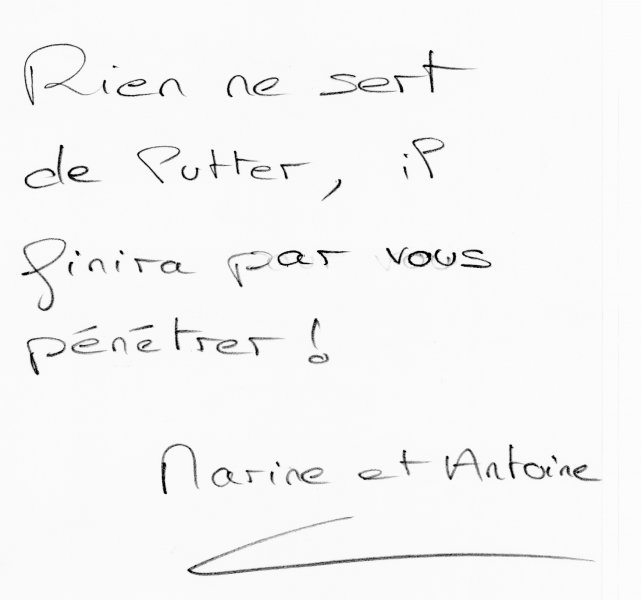 Rien ne sert
de lutter, il
finira par vous
pénétrer !
Marine et Antoine